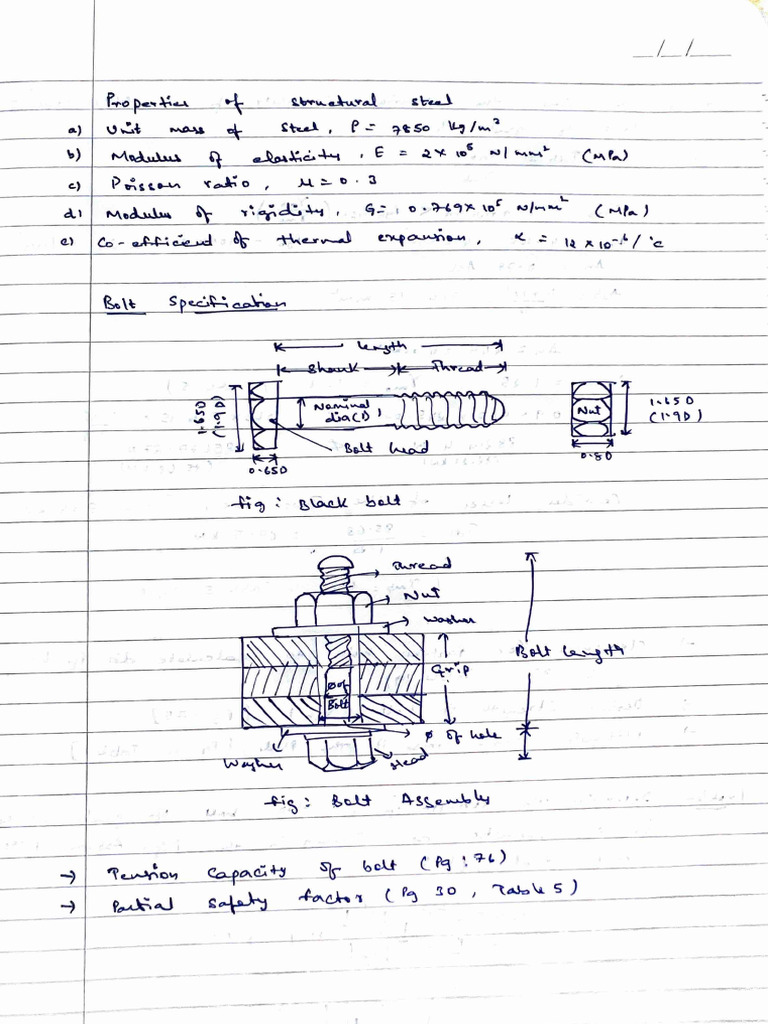 __/__/__
Properties of structural steel
a) Unit mass of steel, ρ = 7850 kg/m³
b) Modulus of elasticity, E = 2 × 10⁵ N/mm² (MPa)
c) Poisson ratio, μ = 0.3
d) Modulus of rigidity, G = 0.769 × 10⁵ N/mm² (MPa)
e) Co-efficient of thermal expansion, α = 12 × 10⁻⁶ / °C
Bolt Specification
length
Shank
Thread
1.65D
(1.9D)
Nominal
dia(D)
Nut
1.65D
(1.9D)
Bolt head
0.65D
0.8D
fig : Black bolt
Thread
Nut
Washer
Bolt length
Grip
ø of
Bolt
ø of hole
Washer
Head
fig : Bolt Assembly
→ Tension Capacity of bolt (Pg : 76)
→ Partial safety factor (Pg 30, Table 5)